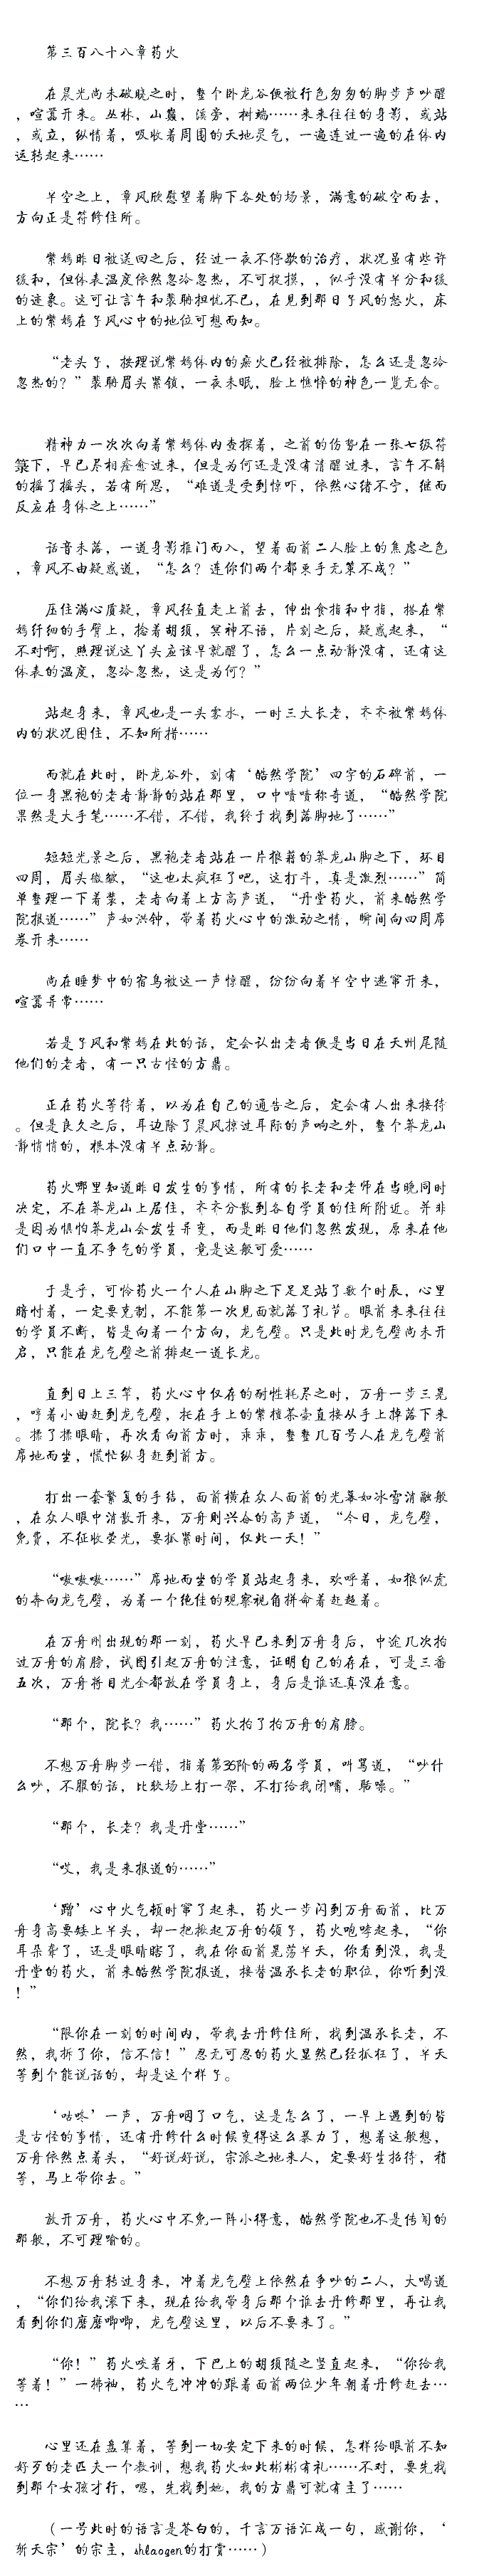 第三百八十八章药火
在晨光尚未破晓之时，整个卧龙谷便被行色匆匆的脚步声吵醒
，喧嚣开来。丛林，山巅，溪旁，树端……来来往往的身影，或站
，或立，纵情着，吸收着周围的天地灵气，一遍连过一遍的在体内
运转起来……
半空之上，章风欣慰望着脚下各处的场景，满意的破空而去，
方向正是符修住所。
紫嫣昨日被送回之后，经过一夜不停歇的治疗，状况虽有些许
缓和，但体表温度依然忽冷忽热，不可捉摸，，似乎没有半分和缓
的迹象。这可让言午和裴聃担忧不已，在见到那日子风的怒火，床
上的紫嫣在子风心中的地位可想而知。
“老头子，按理说紫嫣体内的瘀火已经被排除，怎么还是忽冷
忽热的？”裴聃眉头紧锁，一夜未眠，脸上憔悴的神色一览无余。
精神力一次次向着紫嫣体内查探着，之前的伤势在一张七级符
箓下，早已尽相痊愈过来，但是为何还是没有清醒过来，言午不解
的摇了摇头，若有所思，“难道是受到惊吓，依然心绪不宁，继而
反应在身体之上……”
话音未落，一道身影推门而入，望着面前二人脸上的焦虑之色
，章风不由疑惑道，“怎么？连你们两个都束手无策不成？”
压住满心质疑，章风径直走上前去，伸出食指和中指，搭在紫
嫣纤细的手臂上，捻着胡须，冥神不语，片刻之后，疑惑起来，“
不对啊，照理说这丫头应该早就醒了，怎么一点动静没有，还有这
体表的温度，忽冷忽热，这是为何？”
站起身来，章风也是一头雾水，一时三大长老，齐齐被紫嫣体
内的状况困住，不知所措……
而就在此时，卧龙谷外，刻有‘皓然学院’四字的石碑前，一
位一身黑袍的老者静静的站在那里，口中啧啧称奇道，“皓然学院
果然是大手笔……不错，不错，我终于找到落脚地了……”
短短光景之后，黑袍老者站在一片狼藉的莽龙山脚之下，环目
四周，眉头微皱，“这也太疯狂了吧，这打斗，真是激烈……”简
单整理一下着装，老者向着上方高声道，“丹堂药火，前来皓然学
院报道……”声如洪钟，带着药火心中的激动之情，瞬间向四周席
卷开来……
尚在睡梦中的宿鸟被这一声惊醒，纷纷向着半空中逃窜开来，
喧嚣异常……
若是子风和紫嫣在此的话，定会认出老者便是当日在天州尾随
他们的老者，有一只古怪的方鼎。
正在药火等待着，以为在自己的通告之后，定会有人出来接待
。但是良久之后，耳边除了晨风掠过耳际的声响之外，整个莽龙山
静悄悄的，根本没有半点动静。
药火哪里知道昨日发生的事情，所有的长老和老师在当晚同时
决定，不在莽龙山上居住，齐齐分散到各自学员的住所附近。并非
是因为惧怕莽龙山会发生异变，而是昨日他们忽然发现，原来在他
们口中一直不争气的学员，竟是这般可爱……
于是乎，可怜药火一个人在山脚之下足足站了数个时辰，心里
暗忖着，一定要克制，不能第一次见面就落了礼节。眼前来来往往
的学员不断，皆是向着一个方向，龙气壁。只是此时龙气壁尚未开
启，只能在龙气壁之前排起一道长龙。
直到日上三竿，药火心中仅存的耐性耗尽之时，万舟一步三晃
，哼着小曲赶到龙气壁，托在手上的紫檀茶壶直接从手上掉落下来
。揉了揉眼睛，再次看向前方时，乖乖，整整几百号人在龙气壁前
席地而坐，慌忙纵身赶到前方。
打出一套繁复的手结，面前横在众人面前的光幕如冰雪消融般
，在众人眼中消散开来，万舟则兴奋的高声道，“今日，龙气壁，
免费，不征收荧光，要抓紧时间，仅此一天！”
“嗷嗷嗷……”席地而坐的学员站起身来，欢呼着，如狼似虎
的奔向龙气壁，为着一个绝佳的观察视角拼命着赶超着。
在万舟刚出现的那一刻，药火早已来到万舟身后，中途几次拍
过万舟的肩膀，试图引起万舟的注意，证明自己的存在，可是三番
五次，万舟将目光全都放在学员身上，身后是谁还真没在意。
“那个，院长？我……”药火拍了拍万舟的肩膀。
不想万舟脚步一错，指着第36阶的两名学员，叫骂道，“吵什
么吵，不服的话，比较场上打一架，不打给我闭嘴，聒噪。”
“那个，长老？我是丹堂……”
“哎，我是来报道的……”
‘蹭’心中火气顿时窜了起来，药火一步闪到万舟面前，比万
舟身高要矮上半头，却一把揪起万舟的领子，药火咆哮起来，“你
耳朵聋了，还是眼睛瞎了，我在你面前晃荡半天，你看到没，我是
丹堂的药火，前来皓然学院报道，接替温承长老的职位，你听到没
！”
“限你在一刻的时间内，带我去丹修住所，找到温承长老，不
然，我拆了你，信不信！”忍无可忍的药火显然已经抓狂了，半天
等到个能说话的，却是这个样子。
‘咕咚’一声，万舟咽了口气，这是怎么了，一早上遇到的皆
是古怪的事情，还有丹修什么时候变得这么暴力了，想着这般想，
万舟依然点着头，“好说好说，宗派之地来人，定要好生招待，稍
等，马上带你去。”
放开万舟，药火心中不免一阵小得意，皓然学院也不是传闻的
那般，不可理喻的。
不想万舟转过身来，冲着龙气壁上依然在争吵的二人，大喝道
，“你们给我滚下来，现在给我带身后那个谁去丹修那里，再让我
看到你们磨磨唧唧，龙气壁这里，以后不要来了。”
“你！”药火咬着牙，下巴上的胡须随之竖直起来，“你给我
等着！”一拂袖，药火气冲冲的跟着面前两位少年朝着丹修赶去…
…
心里还在盘算着，等到一切安定下来的时候，怎样给眼前不知
好歹的老匹夫一个教训，想我药火如此彬彬有礼……不对，要先找
到那个女孩才行，嗯，先找到她，我的方鼎可就有主了……
（一号此时的语言是苍白的，千言万语汇成一句，感谢你，‘
斩天宗’的宗主，shlaogen的打赏……）